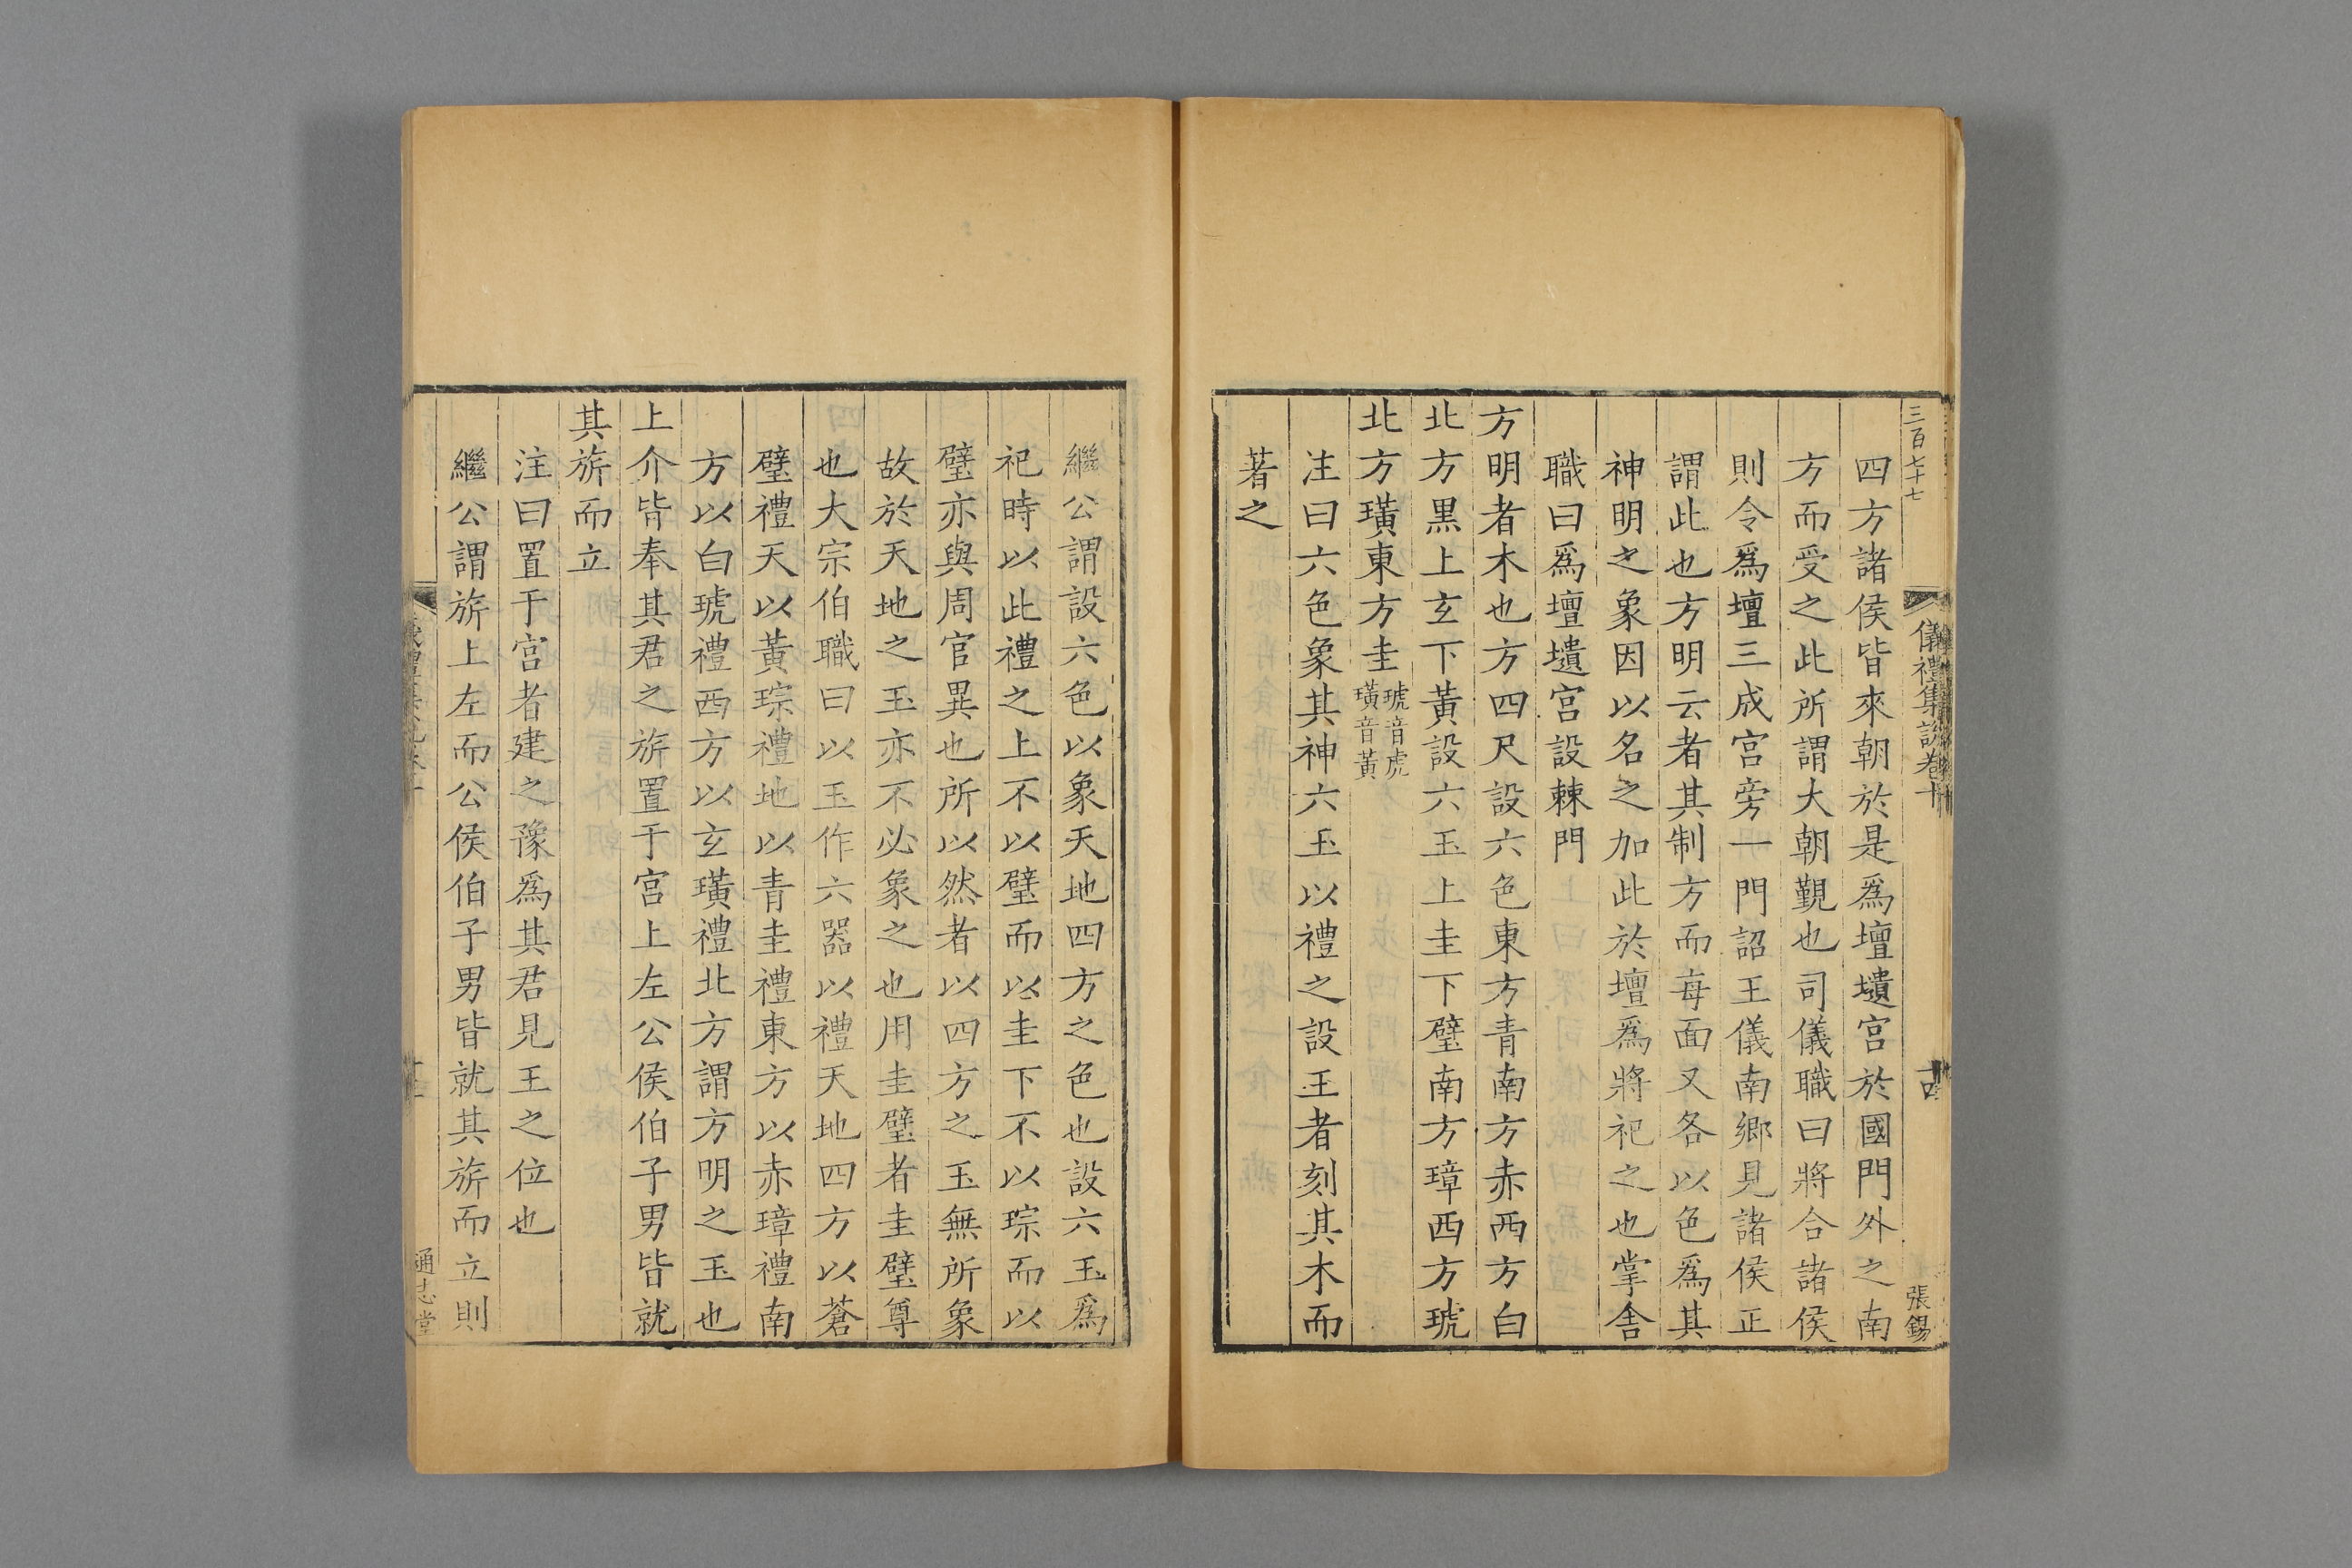 三百七十七
儀禮集說卷十
張錫
四方諸侯皆來朝於是爲壇壝宫於國門外之南
方而受之此所謂大朝覲也司儀職曰將合諸侯
則令爲壇三成宫旁一門詔王儀南鄉見諸侯正
謂此也方明云者其制方而每面又各以色爲其
神明之象因以名之加此於壇爲將祀之也掌舍
職曰爲壇壝宫設棘門
方明者木也方四尺設六色東方青南方赤西方白
北方黑上玄下黃設六玉上圭下璧南方璋西方琥
北方璜東方圭琥音虎璜音黃
注曰六色象其神六玉以禮之設玉者刻其木而
著之
繼公謂設六色以象天地四方之色也設六玉爲
祀時以此禮之上不以璧而以圭下不以琮而以
璧亦與周官異也所以然者以四方之玉無所象
故於天地之玉亦不必象之也用圭璧者圭璧尊
也大宗伯職曰以玉作六器以禮天地四方以蒼
璧禮天以黃琮禮地以青圭禮東方以赤璋禮南
方以白琥禮西方以玄璜禮北方謂方明之玉也
上介皆奉其君之旂置于宫上左公侯伯子男皆就
其旂而立
注曰置于宫者建之豫爲其君見王之位也
繼公謂旂上左而公侯伯子男皆就其旂而立則
通志堂